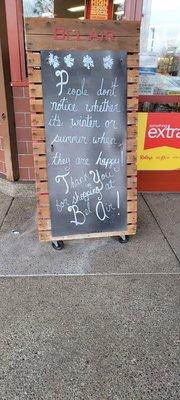 HIGH SCHOOL MUSICAL
BEL AIR
People don't
notice whether
its winter or
summer when
they are happy!
Thank You
for shopping at
Bel Air!
extra
Raley's